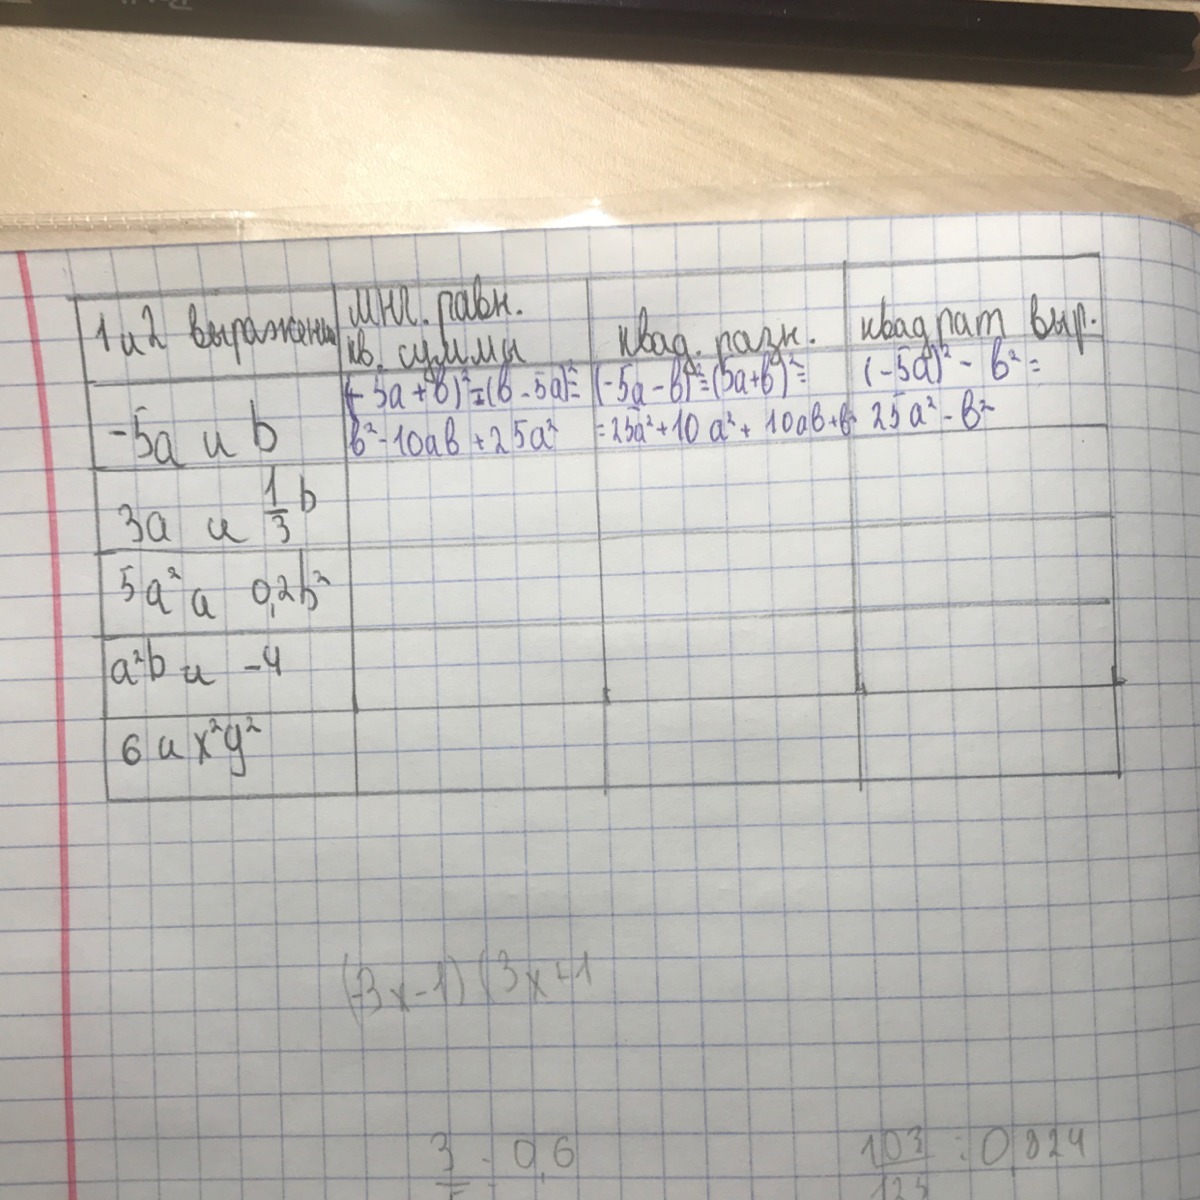 1 и 2 выражения
мнч. равн.
кв. суммы
квад. разн.
квадрат выр.
-5a и b
(-5a+b)²=(b-5a)²=
b²-10ab+25a²
(-5a-b)²=(5a+b)²=
=25a²+10a²+10ab+b²
(-5a)²-b²=
25a²-b²
3a и 1/3 b
5a² и 0,2b²
a²b и -4
6 и x²y²
(-3x-1)(3x+1
3 0,6
103/125 : 0,824